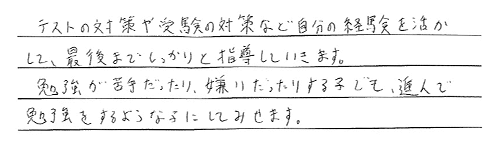 テストの対策や受験の対策など自分の経験を活か
して、最後までしっかりと指導していきます。
勉強が苦手だったり、嫌いだったりする子でも、進んで
勉強をするような子にしてみせます。